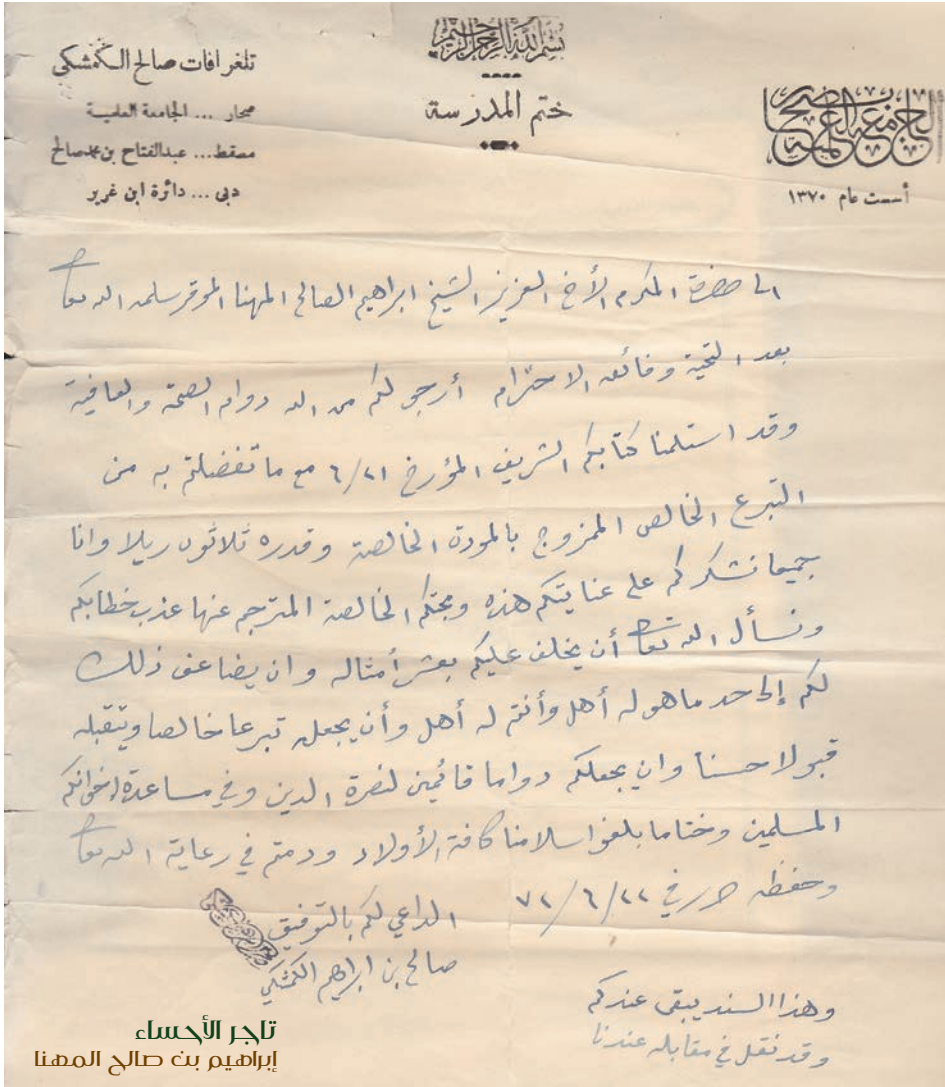 بسم الله الرحمن الرحيم
ختم المدرسة
الجامعة العلمية بصحار
أسست عام ١٣٧٠
تلغرافات صالح الكمشكي
صحار ... الجامعة العلمية
مسقط ... عبدالفتاح بن محمد صالح
دبى ... دائرة ابن غرير
الى حضرة المكرم الأخ العزيز الشيخ ابراهيم الصالح المهنا الموقر سلمه الله تعالى
بعد التحية وفائق الاحترام أرجو لكم من الله دوام الصحة والعافية
وقد استلمنا كتابكم الشريف المؤرخ ٦/٢١ مع ما تفضلتم به من
التبرع الخالص الممزوج بالمودة الخالصة وقدره ثلاثون ريلا وانا
جميعا نشكركم على عنايتكم هذه ومحبتكم الخالصة المترجم عنها عذب خطابكم
ونسأل الله تعالى أن يخلف عليكم بعشر أمثاله وان يضاعف ذلك
لكم إلى حد ما هو له أهل وأنتم له أهل وأن يجعله تبرعا خالصا ويتقبله
قبولا حسنا وان يجعلكم دواما قائمين لنصرة الدين وفي مساعدة اخوانكم
المسلمين وختاما بلغوا سلامنا كافة الأولاد ودمتم في رعاية الله تعالى
وحفظه حرر في ٧٢/٦/٢٢
الداعي لكم بالتوفيق
صالح بن ابراهيم الكمشكي
وهذا السند يبقى عندكم
وقد نقل في مقابله عندنا
تاجر الأحساء
إبراهيم بن صالح المهنا